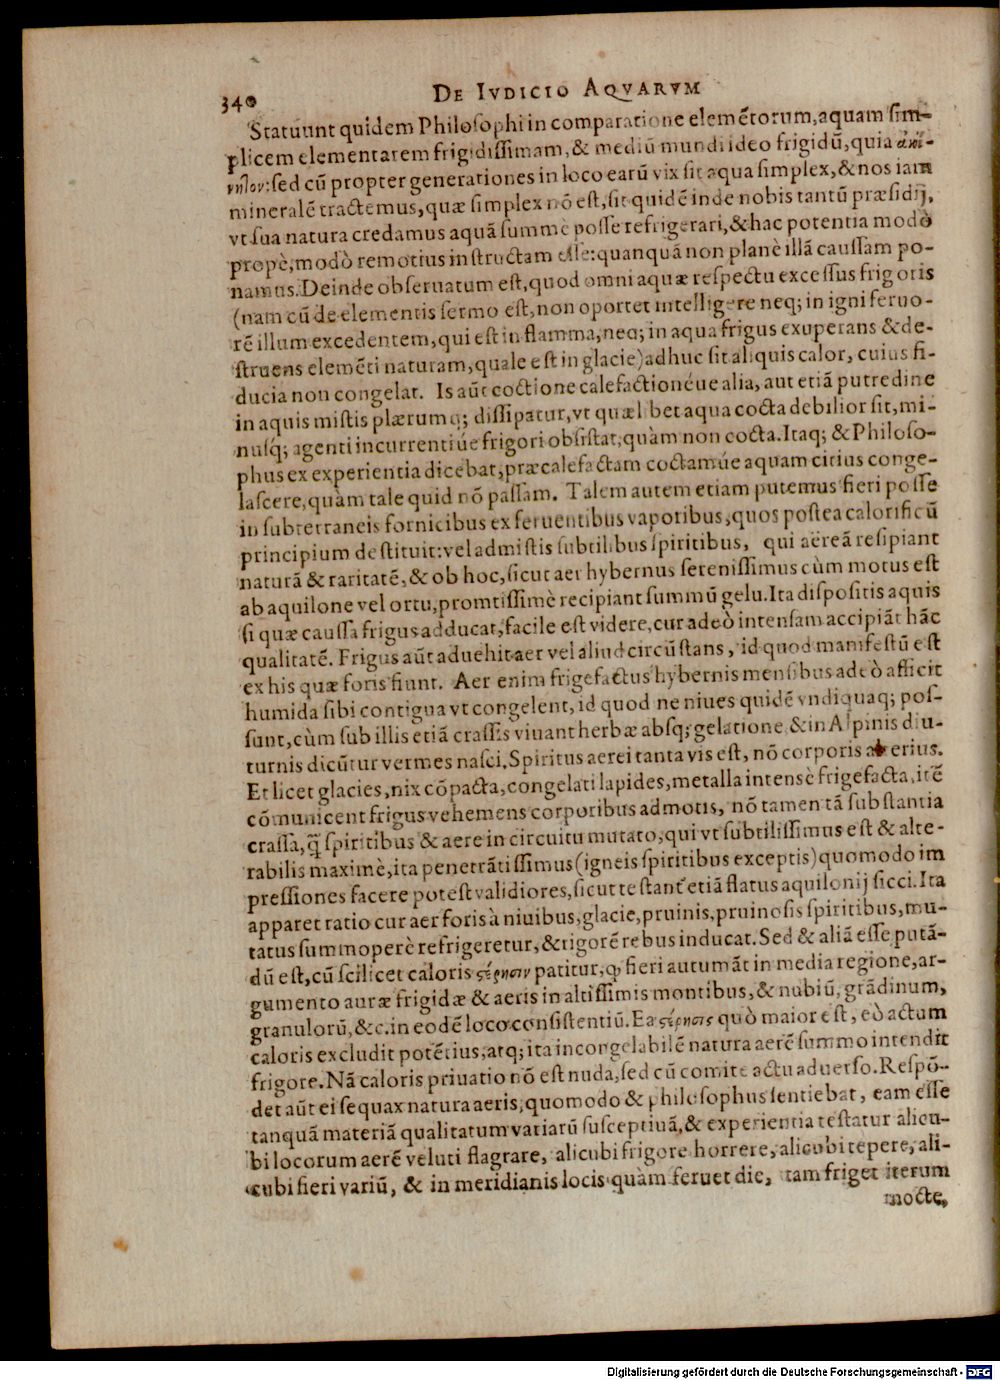 340 DE IVDICIO AQVARVM
Statuunt quidem Philosophi in comparatione elemẽtorum, aquam sim-
plicem elementarem frigidissimam, & mediũ mundi ideo frigidũ, quia
sed cũ propter generationes in loco earũ vix sit aqua simplex, & nos iam
mineralẽ tractemus, quæ simplex nõ est, sit quidẽ inde nobis tantũ præsidij,
vt sua natura credamus aquã summè posse refrigerari, & hac potentia modò
propè, modò remotius instructam esse: quanquã non planè illã caussam po-
namus. Deinde obseruatum est, quod omni aquæ respectu excessus frigoris
(nam cũ de elementis sermo est, non oportet intelligere neq; in igni feruo-
rẽ illum excedentem, qui est in flamma, neq; in aqua frigus exuperans & de-
struens elemẽti naturam, quale est in glacie) adhuc sit aliquis calor, cuius fi-
ducia non congelat. Is aũt coctione calefactionéue alia, aut etiã putredine
in aquis mistis plærumq; dissipatur, vt quælibet aqua cocta debilior sit, mi-
nusq́; agenti incurrentiúe frigori obsistat, quàm non cocta. Itaq; & Philoso-
phus ex experientia dicebat, præcalefactam coctamúe aquam citius conge-
lascere, quàm tale quid nõ passam. Talem autem etiam putemus fieri posse
in subterraneis fornicibus ex feruentibus vaporibus, quos postea calorificũ
principium destituit: vel admistis subtilibus spiritibus, qui aëreã resipiant
naturã & raritatẽ, & ob hoc, sicut aer hybernus serenissimus cùm motus est
ab aquilone vel ortu, promtissimè recipiant summũ gelu. Ita dispositis aquis
si quæ caussa frigus adducat, facile est videre, cur adeò intensam accipiãt hãc
qualitatẽ. Frigus aũt aduehit aer vel aliud circũstans, id quod manifestũ est
ex his quæ foris fiunt. Aer enim frigefactus hybernis mensibus adeò afficit
humida sibi contigua vt congelent, id quod ne niues quidẽ vndiquaq; pos-
sunt, cùm sub illis etiã crassis viuant herbæ absq; gelatione, & in Alpinis diu-
turnis dicũtur vermes nasci. Spiritus aerei tanta vis est, nõ corporis alterius.
Et licet glacies, nix cõpacta, congelati lapides, metalla intensè frigefacta, itẽ
cõmunicent frigus vehemens corporibus admotis, nõ tamen tã substantia
crassa, q̃ spiritibus & aere in circuitu mutato, qui vt subtilissimus est & alte-
rabilis maximè, ita penetrãtissimus (igneis spiritibus exceptis) quomodo im
pressiones facere potest validiores, sicut testant' etiã flatus aquilonij sicci. Ita
apparet ratio cur aer foris à niuibus, glacie, pruinis, pruinosis spiritibus, mu-
tatus summoperè refrigeretur, & rigorẽ rebus inducat. Sed & aliã esse putã-
dũ est, cũ scilicet caloris στέρησιν patitur, q̃ fieri autumãt in media regione, ar-
gumento auræ frigidæ & aeris in altissimis montibus, & nubiũ, grãdinum,
granulorũ, &c. in eodẽ loco consistentiũ. Ea στέρησις quò maior est, eò actum
caloris excludit potẽtius, atq; ita incongelabilẽ natura aerẽ summo intendit
frigore. Nã caloris priuatio nõ est nuda, sed cũ comite actu aduerso. Respõ-
det aũt ei sequax natura aeris, quomodo & philosophus sentiebat, eam esse
tanquã materiã qualitatum variarũ susceptiuã, & experientia testatur alicu-
bi locorum aerẽ veluti flagrare, alicubi frigore horrere, alicubi tepere, ali-
cubi fieri variũ, & in meridianis locis quàm feruet die, tam friget iterum
nocte,
Digitalisierung gefördert durch die Deutsche Forschungsgemeinschaft - DFG